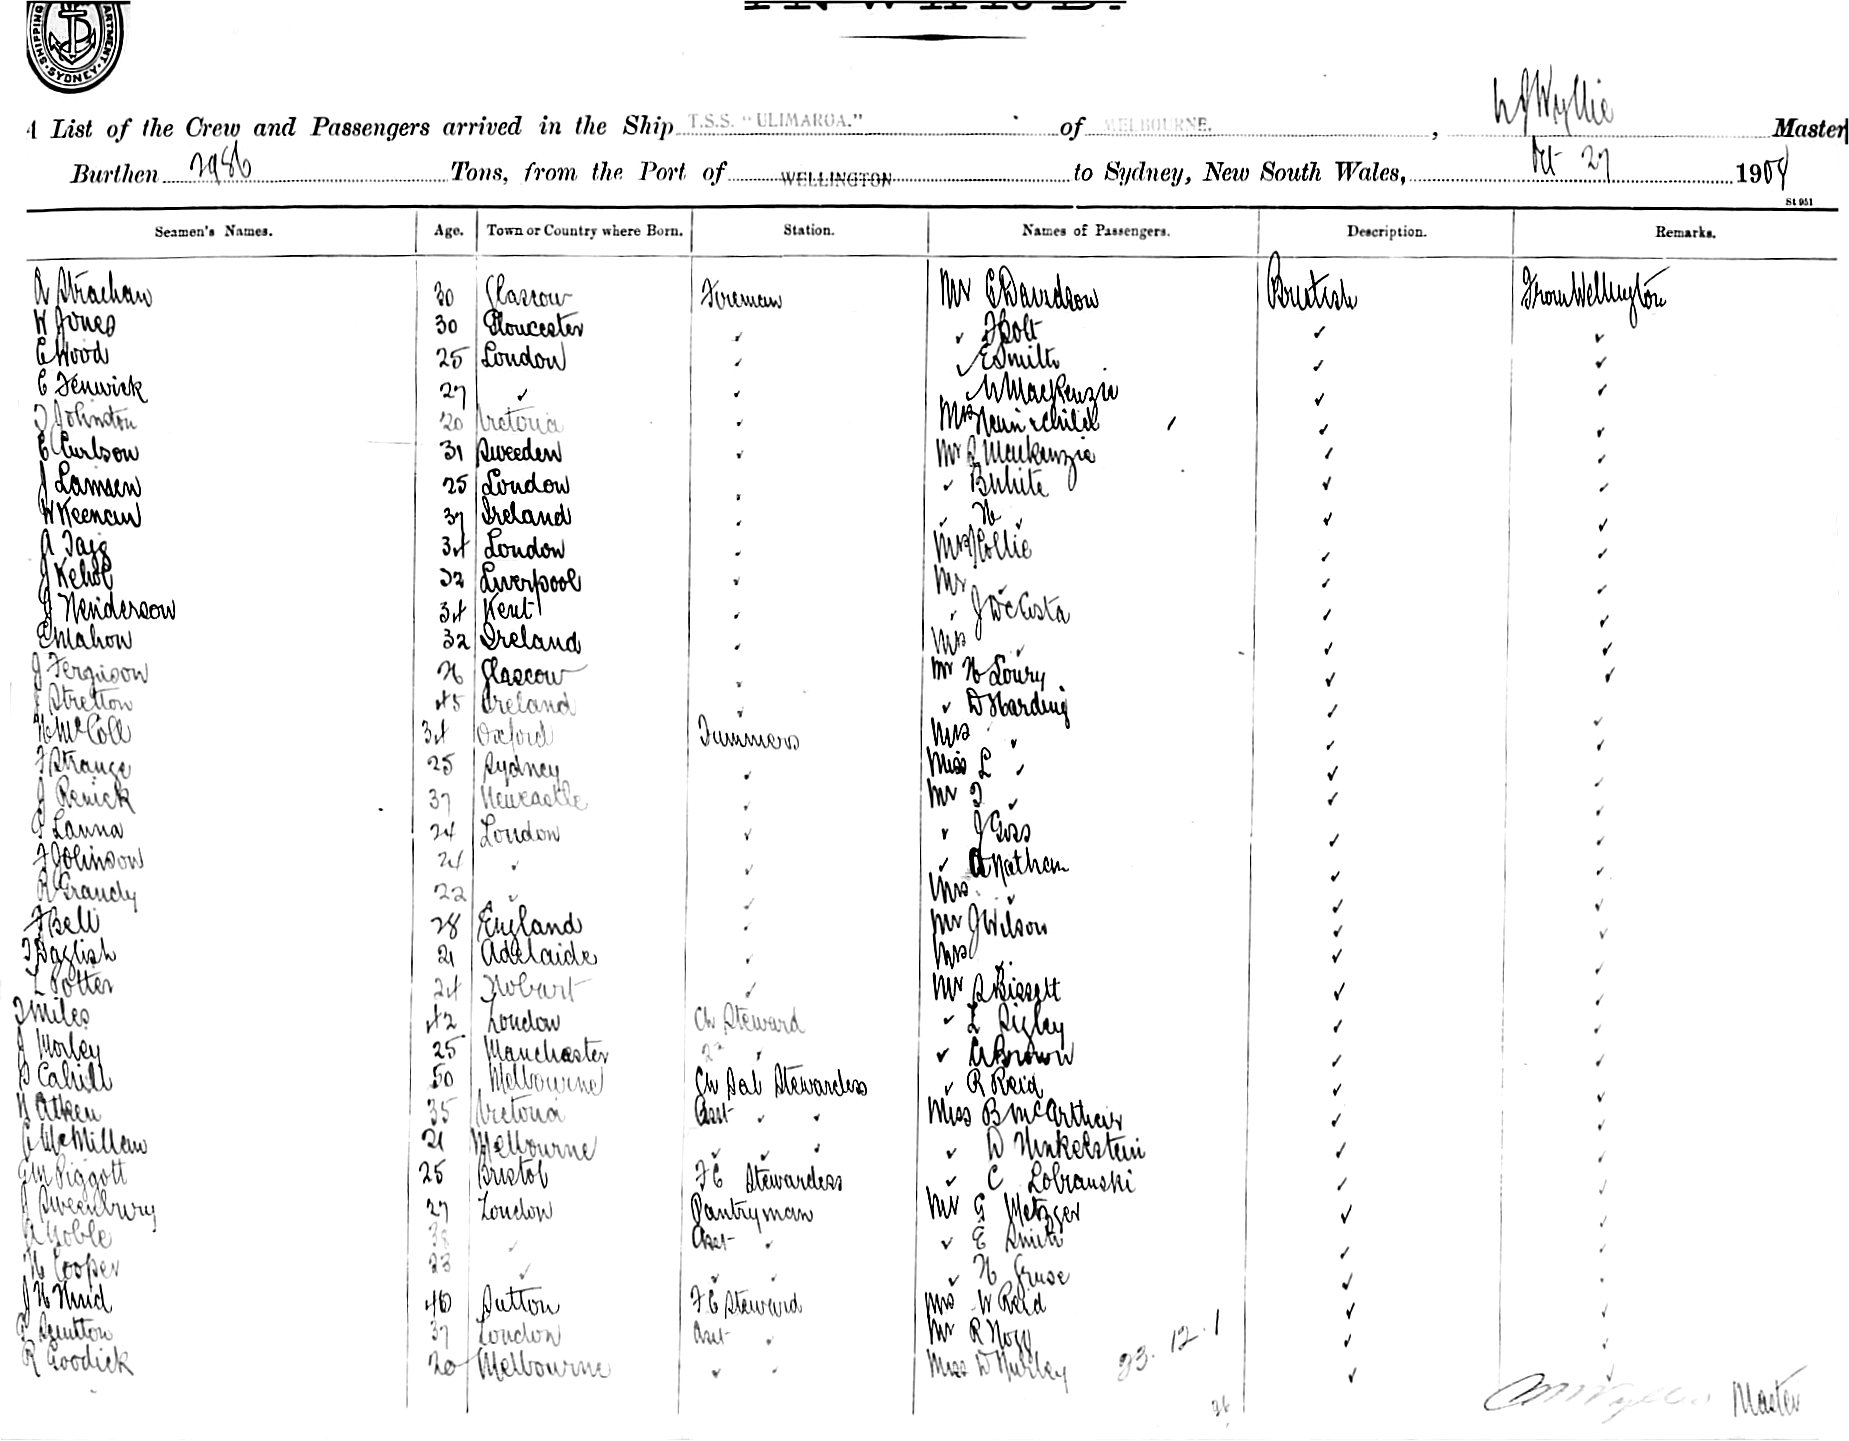 INWARD.
SHIPPING DEPARTMENT SYDNEY
A List of the Crew and Passengers arrived in the Ship T.S.S. "ULIMAROA." of MELBOURNE, W J Wyllie Master
Burthen 2986 Tons, from the Port of WELLINGTON to Sydney, New South Wales, Oct 27 1908
St 951
Seamen's Names. Age. Town or Country where Born. Station. Names of Passengers. Description. Remarks.
A Strachan 30 Glascow Fireman Mr C Davidson British From Wellington
W Jones 30 Gloucester ✓ ✓ F Bolt ✓ ✓
C Wood 25 London ✓ ✓ E Smith ✓ ✓
C Fenwick 27 ✓ ✓ MacKenzie ✓ ✓
J Johnston 20 Victoria ✓ Mrs & child ✓ ✓
E Carlson 31 Sweeden ✓ Mr R Mackenzie ✓ ✓
J Lamsen 25 London ✓ ✓ B White ✓ ✓
W Keenan 37 Ireland ✓ ✓ H ✓ ✓ ✓
A Taig 34 London ✓ Mrs J Collie ✓ ✓
J Kehoe 32 Liverpool ✓ Mr ✓ ✓ ✓
J Henderson 34 Kent ✓ ✓ J DeCosta ✓ ✓
E Mahon 32 Ireland ✓ Mrs ✓ ✓ ✓
J Ferguson 26 Glascow ✓ Mr H Loury ✓ ✓
J Stretton 45 Ireland ✓ ✓ D Harding ✓ ✓
H McColl 34 Oxford Trimmers Mrs ✓ ✓ ✓
F Strange 25 Sydney ✓ Miss L ✓ ✓ ✓
J Renick 37 Newcastle ✓ Mr J ✓ ✓ ✓
F Lanna 24 London ✓ ✓ J Goss ✓ ✓
F Johnson 24 ✓ ✓ ✓ A Nathan ✓ ✓
R Grandy 22 ✓ ✓ Mrs ✓ ✓ ✓
F Bell 28 England ✓ Mr J Wilson ✓ ✓
J Daglish 21 Adelaide ✓ Mrs ✓ ✓ ✓
L Potter 24 Hobart ✓ Mr R Bissett ✓ ✓
J Miles 42 London Ch Steward ✓ L Rigley ✓ ✓
J Morley 25 Manchester 2nd ✓ ✓ A Brown ✓ ✓
B Cahill 50 Melbourne Ch Sal Stewardess ✓ R Reid ✓ ✓
N Aitken 35 Victoria Asst ✓ ✓ Miss B McArthur ✓ ✓
A McMillan 21 Melbourne ✓ ✓ ✓ ✓ D Hinkelstein ✓ ✓
E M Piggott 25 Bristol F C Stewardess ✓ C Lobranski ✓ ✓
J Sweenbury 27 London Pantryman Mr G Metzger ✓ ✓
A Noble 38 ✓ Asst ✓ ✓ E Smith ✓ ✓
H Cooper 23 ✓ ✓ ✓ ✓ H Gruse ✓ ✓
J H Hind 40 Sutton F C Steward Mrs W Reid ✓ ✓
F Scutton 37 London Asst ✓ Mr R Hogg ✓ ✓
R Goodick 20 Melbourne ✓ ✓ Miss D Hurley ✓ ✓
23. 12. 1
26
Wyllie Master